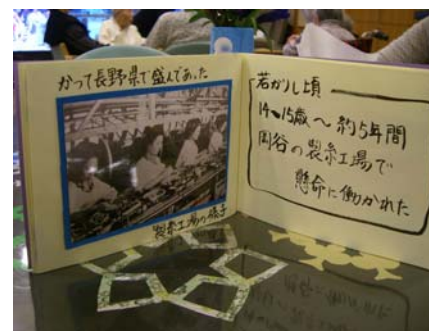 かつて長野県で盛んであった
製糸工場の様子
若かりし頃
14〜15歳〜約5年間
岡谷の製糸工場で
懸命に働かれた